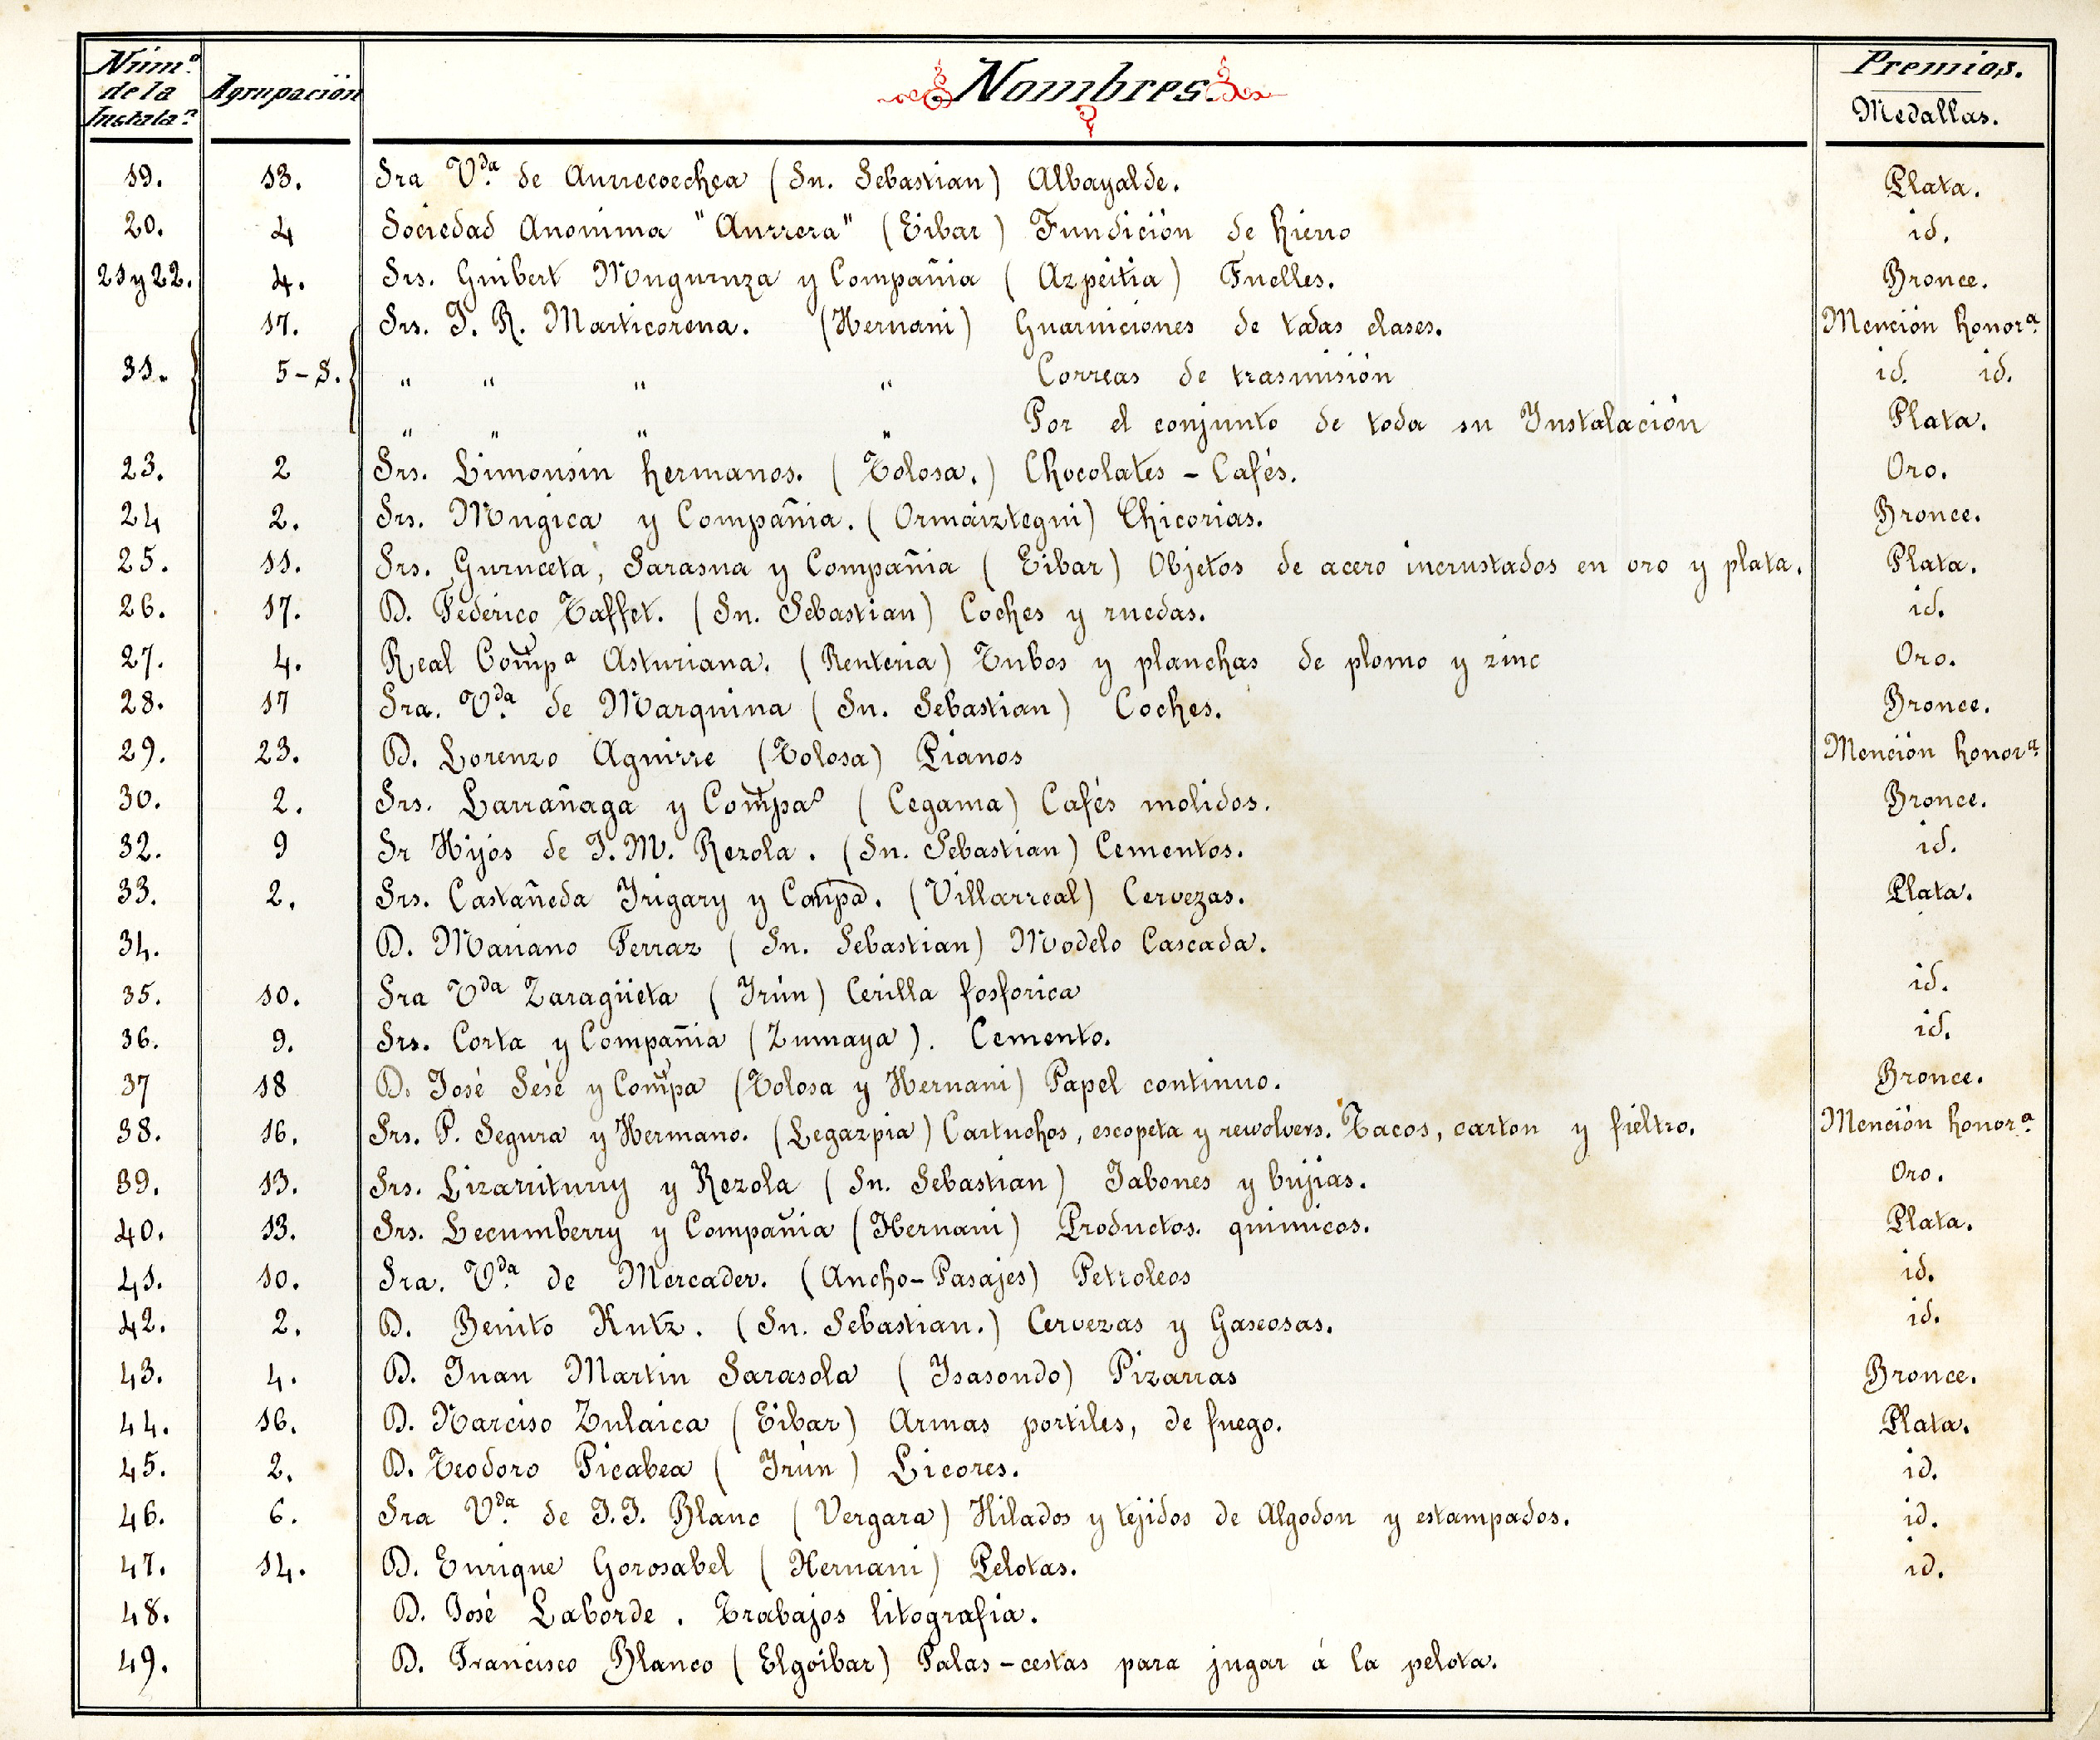 Núm.º de la Instala.n Agrupación Nombres. Premios. Medallas.
19. 13. Sra V.da de Aurrecoechea (Sn. Sebastian) Albayalde. Plata.
20. 4 Sociedad Anonima "Aurrera" (Eibar) Fundición de hierro id.
21 y 22. 4. Srs. Guibert Muguruza y Compañia (Azpeitia) Fuelles. Bronce.
17. Srs. J. R. Marticorena. (Hernani) Guarniciones de todas clases. Mención honor.a
31. 5-8. " " " " Correas de trasmisión id. id.
" " " " Por el conjunto de toda su Instalación Plata.
23. 2 Srs. Limousin hermanos. (Tolosa.) Chocolates - Cafés. Oro.
24 2. Srs. Mugica y Compañia. (Ormáiztegui) Chicorias. Bronce.
25. 11. Srs. Guruceta, Sarasua y Compañia (Eibar) Objetos de acero incrustados en oro y plata. Plata.
26. 17. D. Federico Taffet. (Sn. Sebastian) Coches y ruedas. id.
27. 4. Real Compa Asturiana. (Renteria) Tubos y planchas de plomo y zinc Oro.
28. 17 Sra. V.da de Marquina (Sn. Sebastian) Coches. Bronce.
29. 23. D. Lorenzo Aguirre (Tolosa) Pianos Mención honor.a
30. 2. Srs. Larrañaga y Compa (Cegama) Cafés molidos. Bronce.
32. 9 Sr Hijos de J. M. Rezola. (Sn. Sebastian) Cementos. id.
33. 2. Srs. Castañeda Irigary y Compa. (Villarreal) Cervezas. Plata.
34. D. Mariano Ferraz (Sn. Sebastian) Modelo Cascada.
35. 10. Sra Vda Zaragüeta (Irún) Cerilla fosforica id.
36. 9. Srs. Corta y Compañia (Zumaya). Cemento. id.
37 18 D. José Sesé y Compa (Tolosa y Hernani) Papel continuo. Bronce.
38. 16. Srs. P. Segura y Hermano. (Legazpia) Cartuchos, escopeta y rewolvers. Tacos, carton y fieltro. Mención honor.a
39. 13. Srs. Lizarriturry y Rezola (Sn. Sebastian) Jabones y bujias. Oro.
40. 13. Srs. Lecumberry y Compañia (Hernani) Productos. quimicos. Plata.
41. 10. Sra. V.da de Mercader. (Ancho-Pasajes) Petroleos id.
42. 2. D. Benito Kutz. (Sn. Sebastian.) Cervezas y Gaseosas. id.
43. 4. D. Juan Martin Sarasola (Isasondo) Pizarras Bronce.
44. 16. D. Narciso Zulaica (Eibar) Armas portiles, de fuego. Plata.
45. 2. D. Teodoro Picabea (Irún) Licores. id.
46. 6. Sra V.da de J. J. Blanc (Vergara) Hilados y tejidos de Algodon y estampados. id.
47. 14. D. Enrique Gorosabel (Hernani) Pelotas. id.
48. D. José Laborde. Trabajos litografia.
49. D. Francisco Blanco (Elgoibar) Palas-cestas para jugar á la pelota.